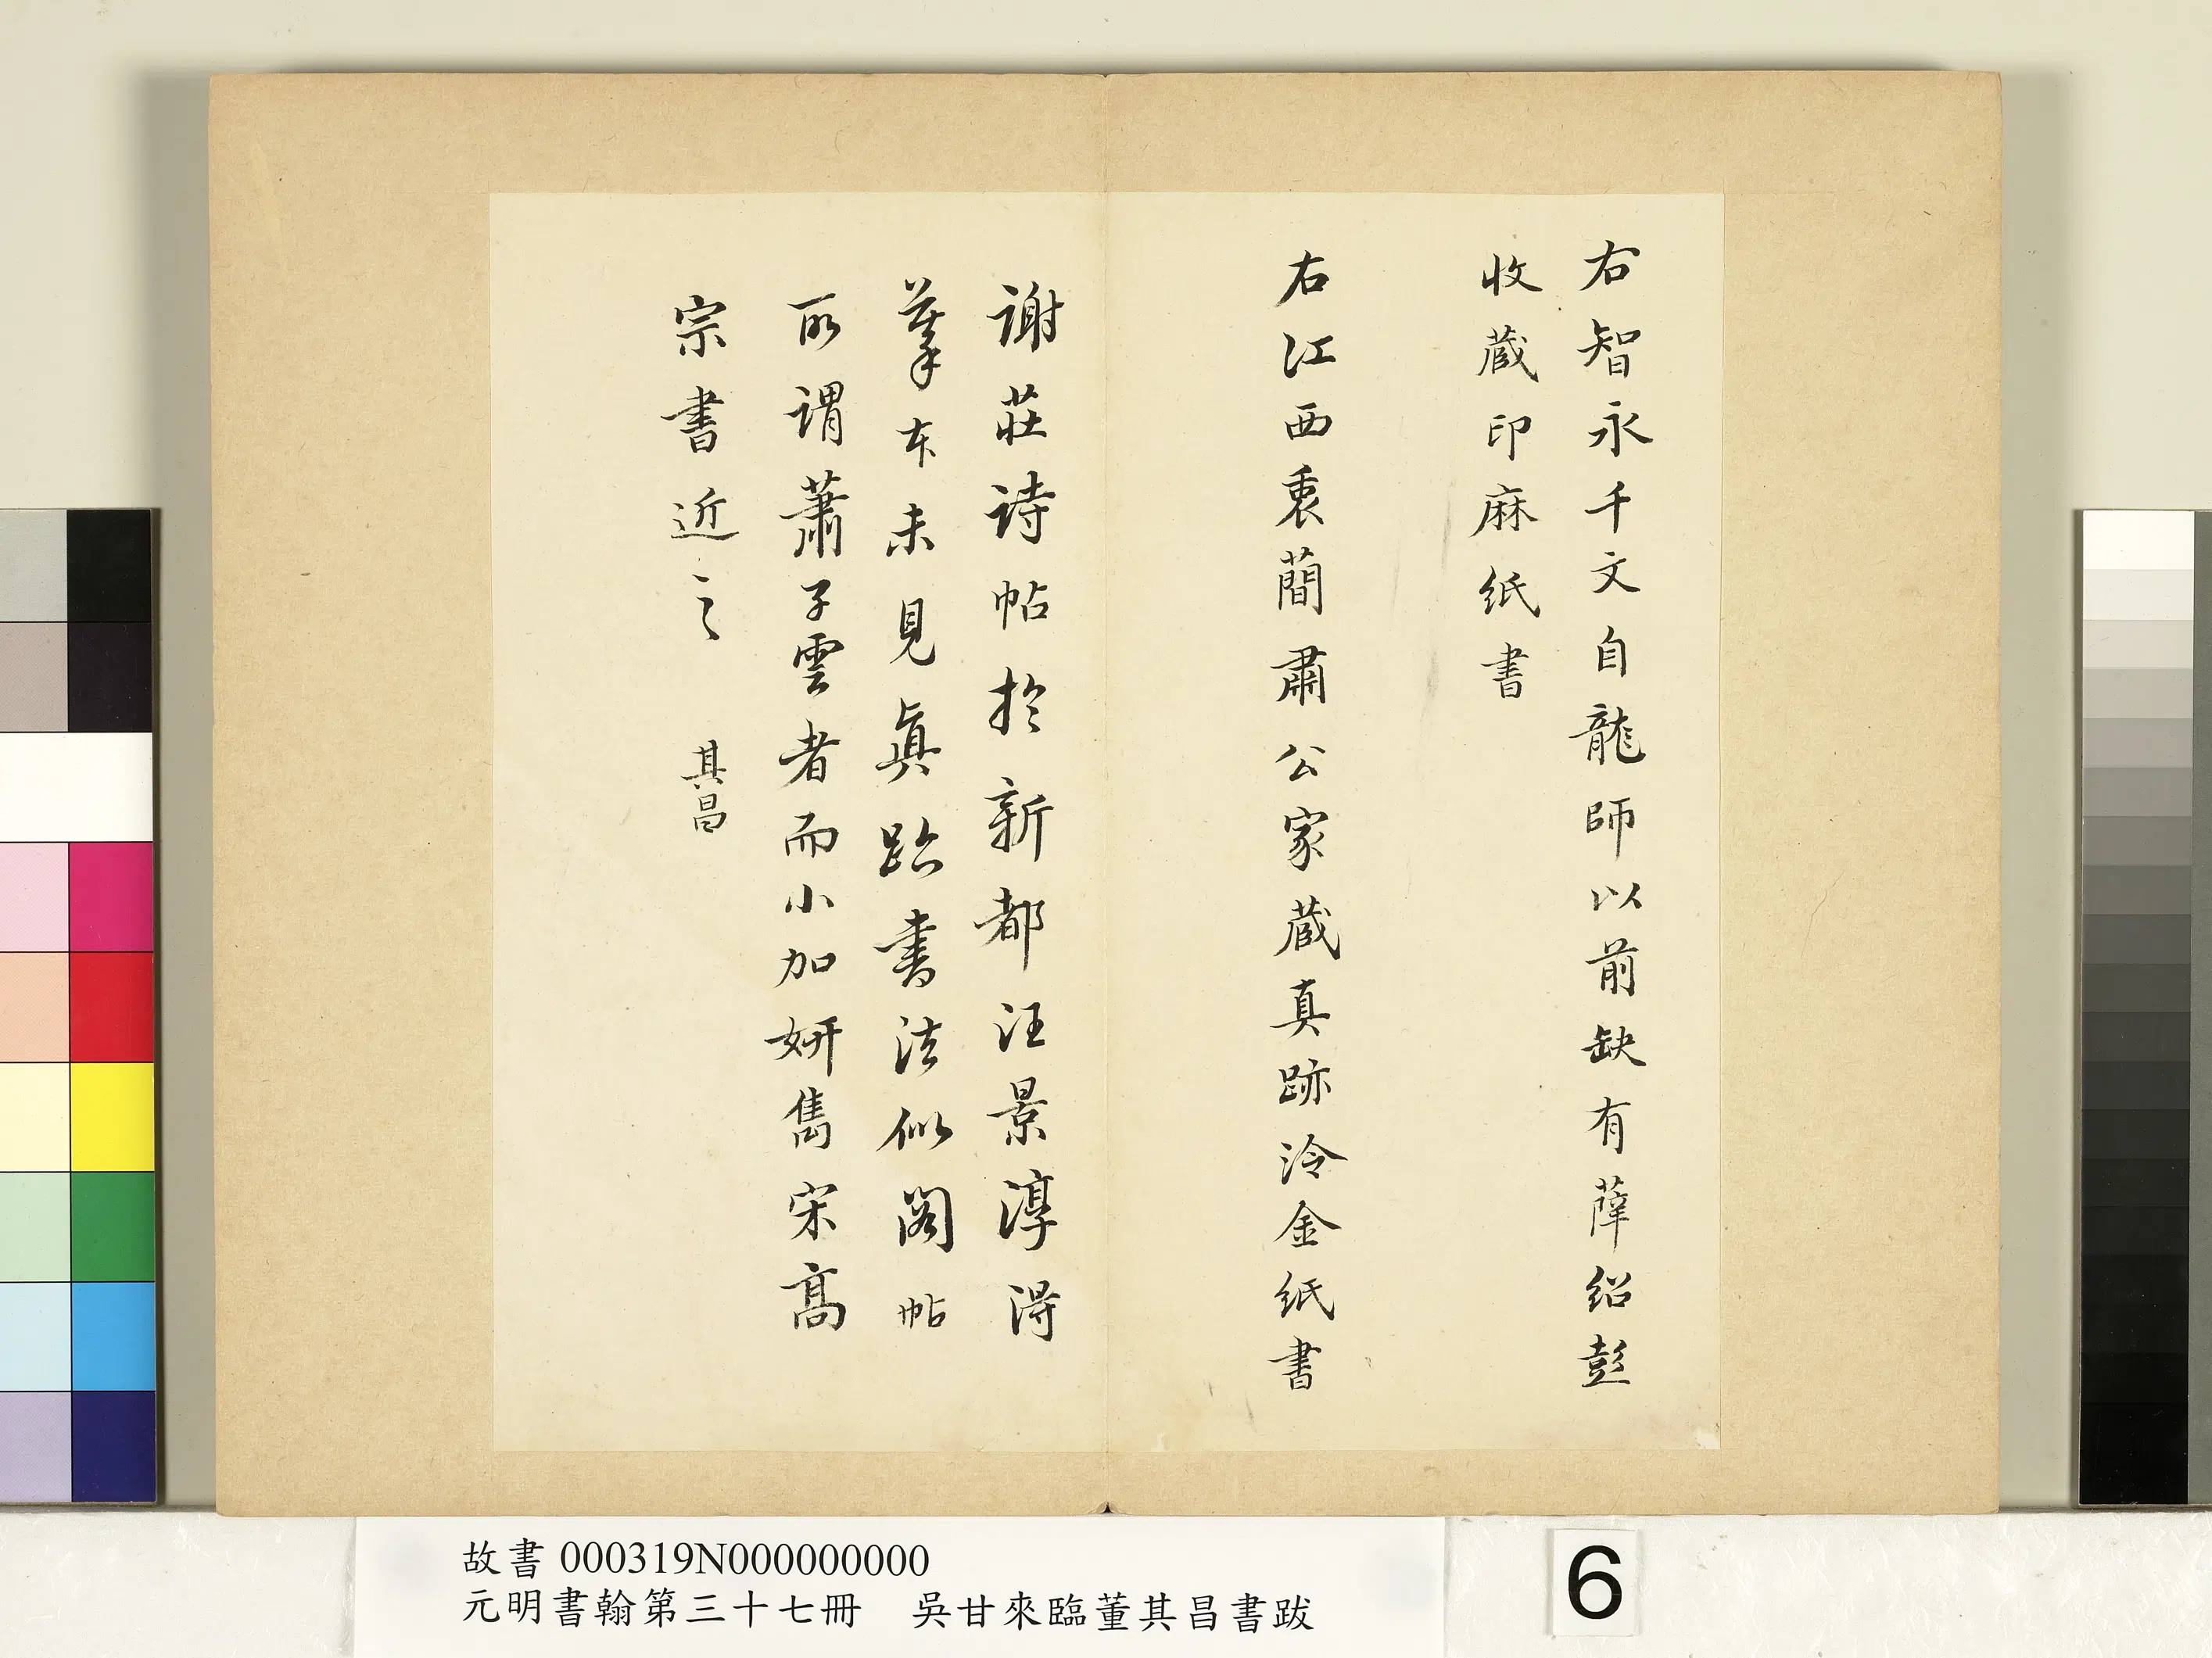 右智永千文自龍師以前缺有薛绍彭
收蔵印麻紙書
右江西袁蕳肅公家蔵真跡泠金紙書
謝莊詩帖於新都汪景淳得
摹本未見眞跡書法似閣帖
所謂蕭子雲者而小加妍雋宋髙
宗書近之 其昌
故書 000319N000000000
元明書翰第三十七冊 吳甘來臨董其昌書跋
6